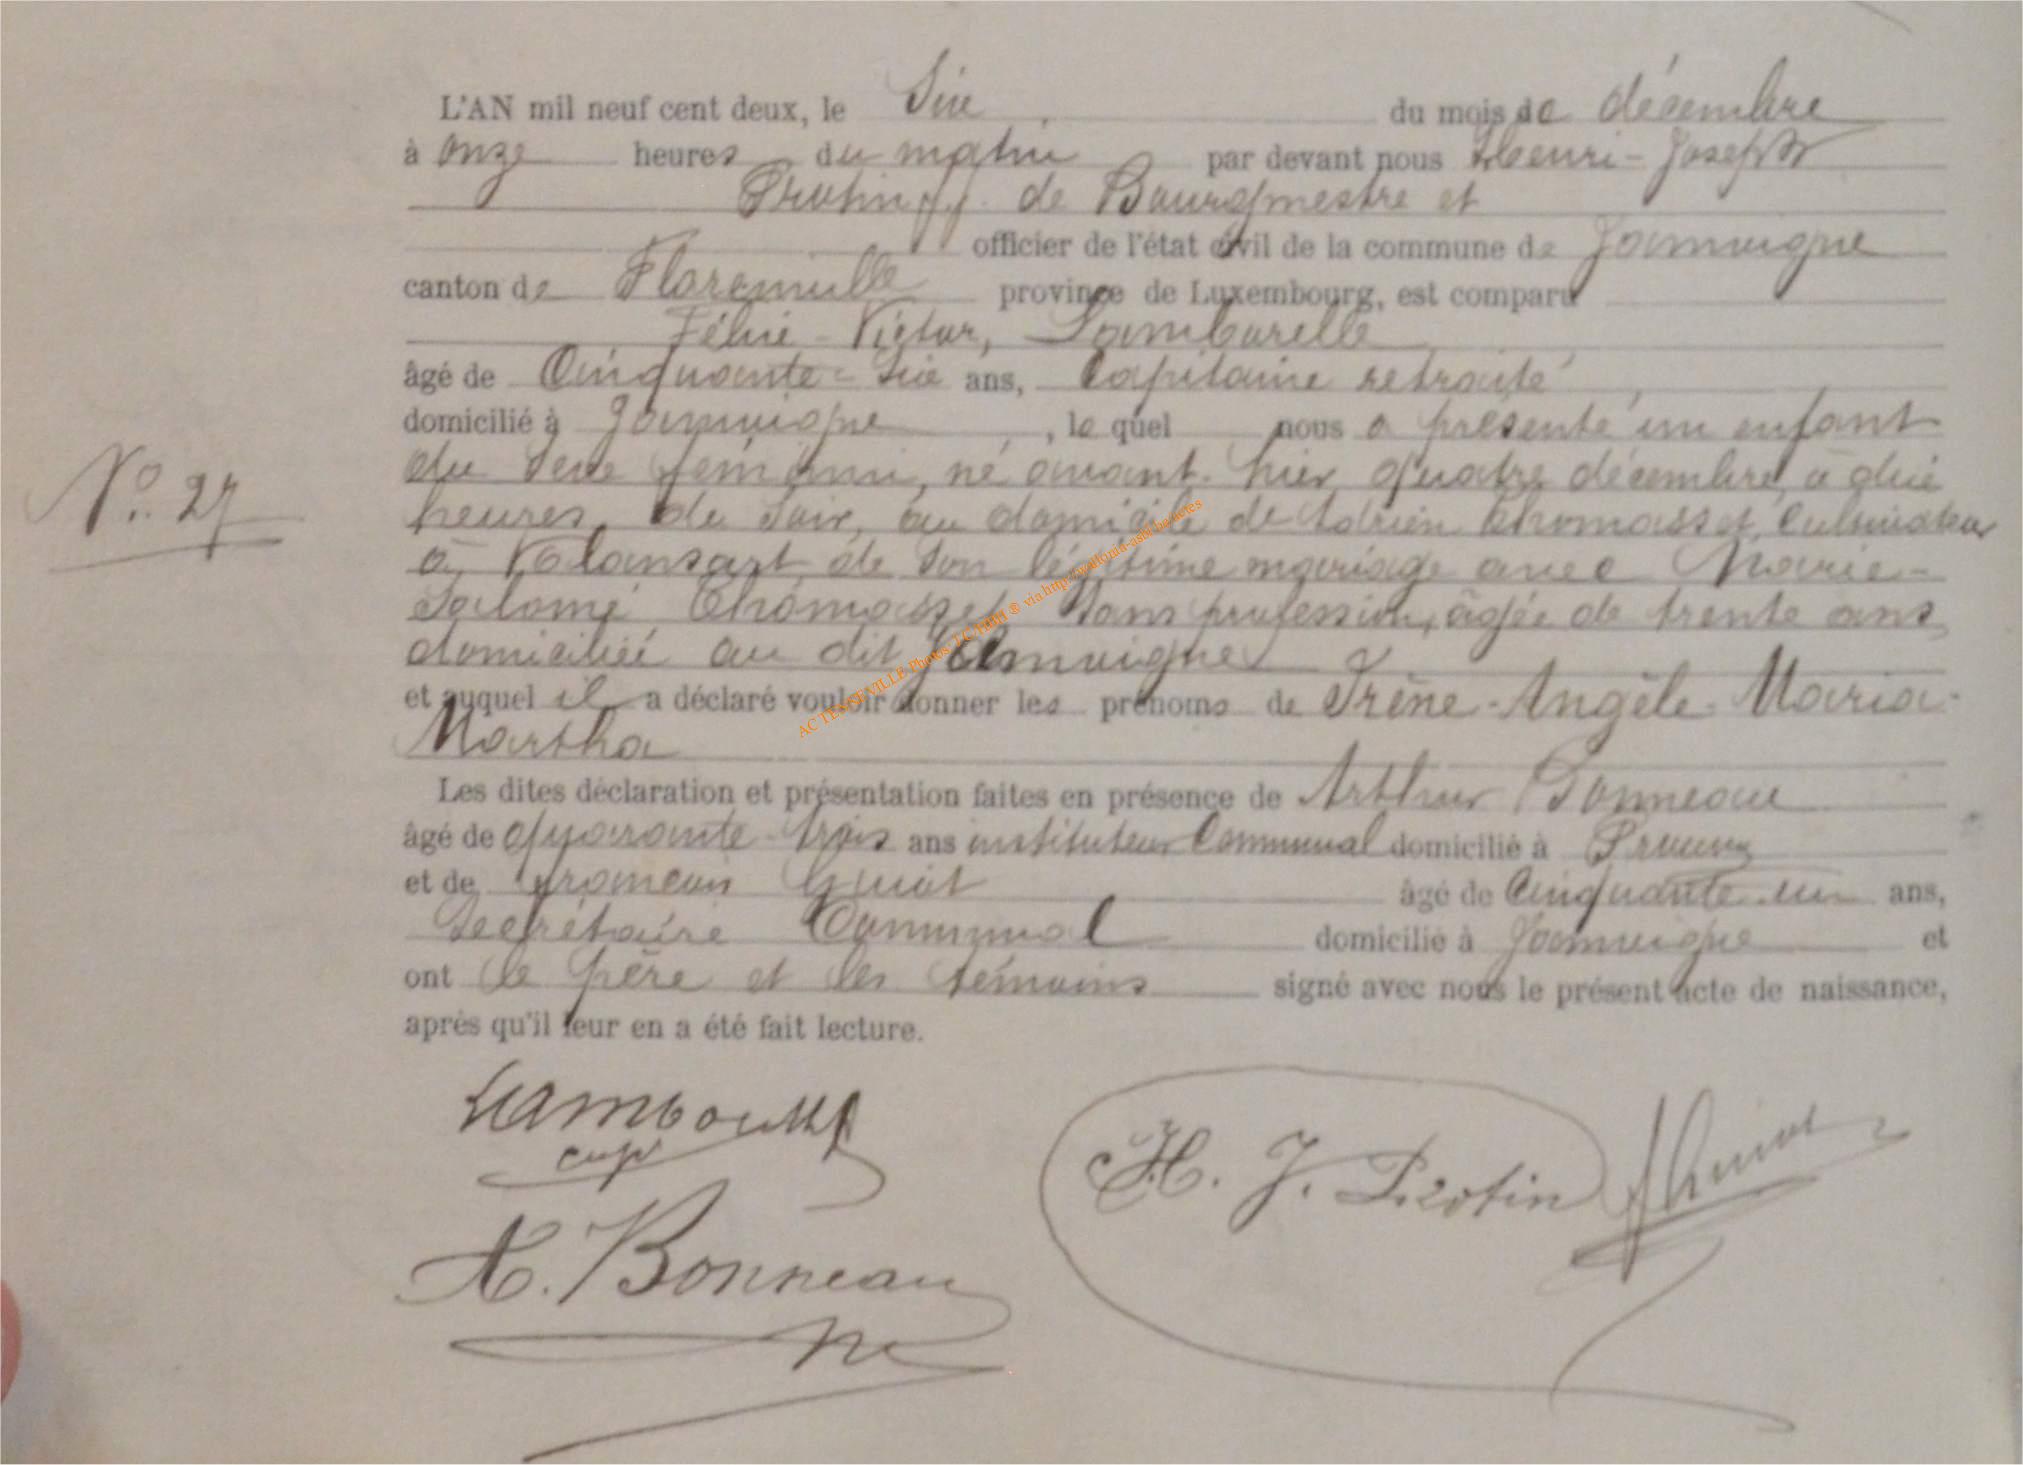 L'AN mil neuf cent deux, le Six du mois de décembre
à onze heures du matin par devant nous Henri-Joseph
Protin ff. de Bourgmestre et
officier de l'état civil de la commune de Jamoigne
canton de Florenville province de Luxembourg, est comparu
Félix-Victor, Lamborelle
âgé de Cinquante-Six ans, Capitaine retraité,
domicilié à Jamoigne, le quel nous a présenté un enfant
du Sexe féminin, né avant-hier quatre décembre, à dix
heures du Soir, au domicile de Adrien Thomasset, Cultivateur
à Valansart, de Son légitime mariage avec Marie-
Salomé Thomasset Sans profession, âgée de trente ans
domiciliée au dit Jamoigne
et auquel il a déclaré vouloir donner les prénoms de Irène-Angèle-Maria-
Martha
Les dites déclaration et présentation faites en présence de Arthur Bonneau
âgé de quarante-trois ans instituteur Communal domicilié à Prouvy
et de François Guiot âgé de Cinquante-un ans,
Secrétaire Communal domicilié à Jamoigne et
ont le père et les témoins signé avec nous le présent acte de naissance,
après qu'il leur en a été fait lecture.
N° 27
AC TEMSEVILLE Photos J.C. ® via http://wallonia-asbl.be/actes
H. J. Protin
A. Bonneau